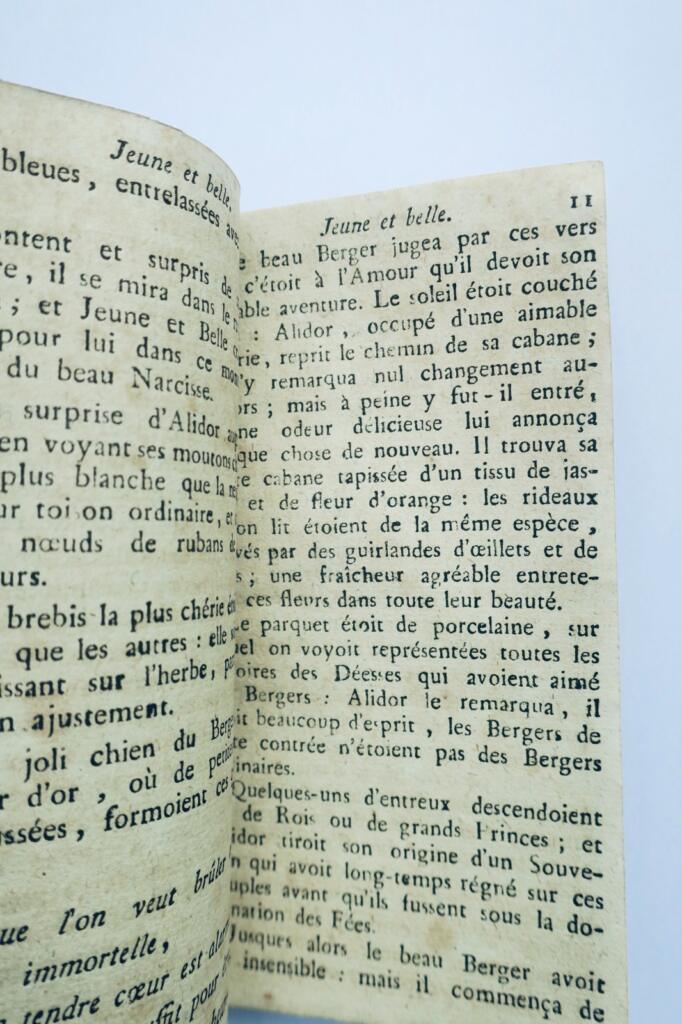 Jeune et belle.
bleues, entrelassées
ontent et surpris de
il se mira dans le
; et Jeune et Belle
pour lui dans ce
du beau Narcisse.
surprise d'Alidor
en voyant ses moutons
plus blanche que la
toi on ordinaire,
nœuds de rubans
urs.
brebis la plus chérie
que les autres : elle
issant sur l'herbe,
n ajustement.
joli chien du
r d'or, où de
ssées, formoient
ue l'on veut brûler
immortelle,
tendre cœur est
pour
Jeune et belle.
11
e beau Berger jugea par ces vers
c'étoit à l'Amour qu'il devoit son
able aventure. Le soleil étoit couché
: Alidor, occupé d'une aimable
rie, reprit le chemin de sa cabane ;
n'y remarqua nul changement au-
ors ; mais à peine y fut-il entré,
ne odeur délicieuse lui annonça
que chose de nouveau. Il trouva sa
e cabane tapissée d'un tissu de jas-
et de fleur d'orange : les rideaux
on lit étoient de la même espèce,
vés par des guirlandes d'œillets et de
s ; une fraîcheur agréable entrete-
ces fleurs dans toute leur beauté.
e parquet étoit de porcelaine, sur
el on voyoit représentées toutes les
oires des Déesses qui avoient aimé
Bergers : Alidor le remarqua, il
it beaucoup d'esprit, les Bergers de
te contrée n'étoient pas des Bergers
inaires.
Quelques-uns d'entreux descendoient
de Rois ou de grands Princes ; et
idor tiroit son origine d'un Souve-
n qui avoit long-temps régné sur ces
uples avant qu'ils fussent sous la do-
nation des Fées.
Jusques alors le beau Berger avoit
insensible : mais il commença de